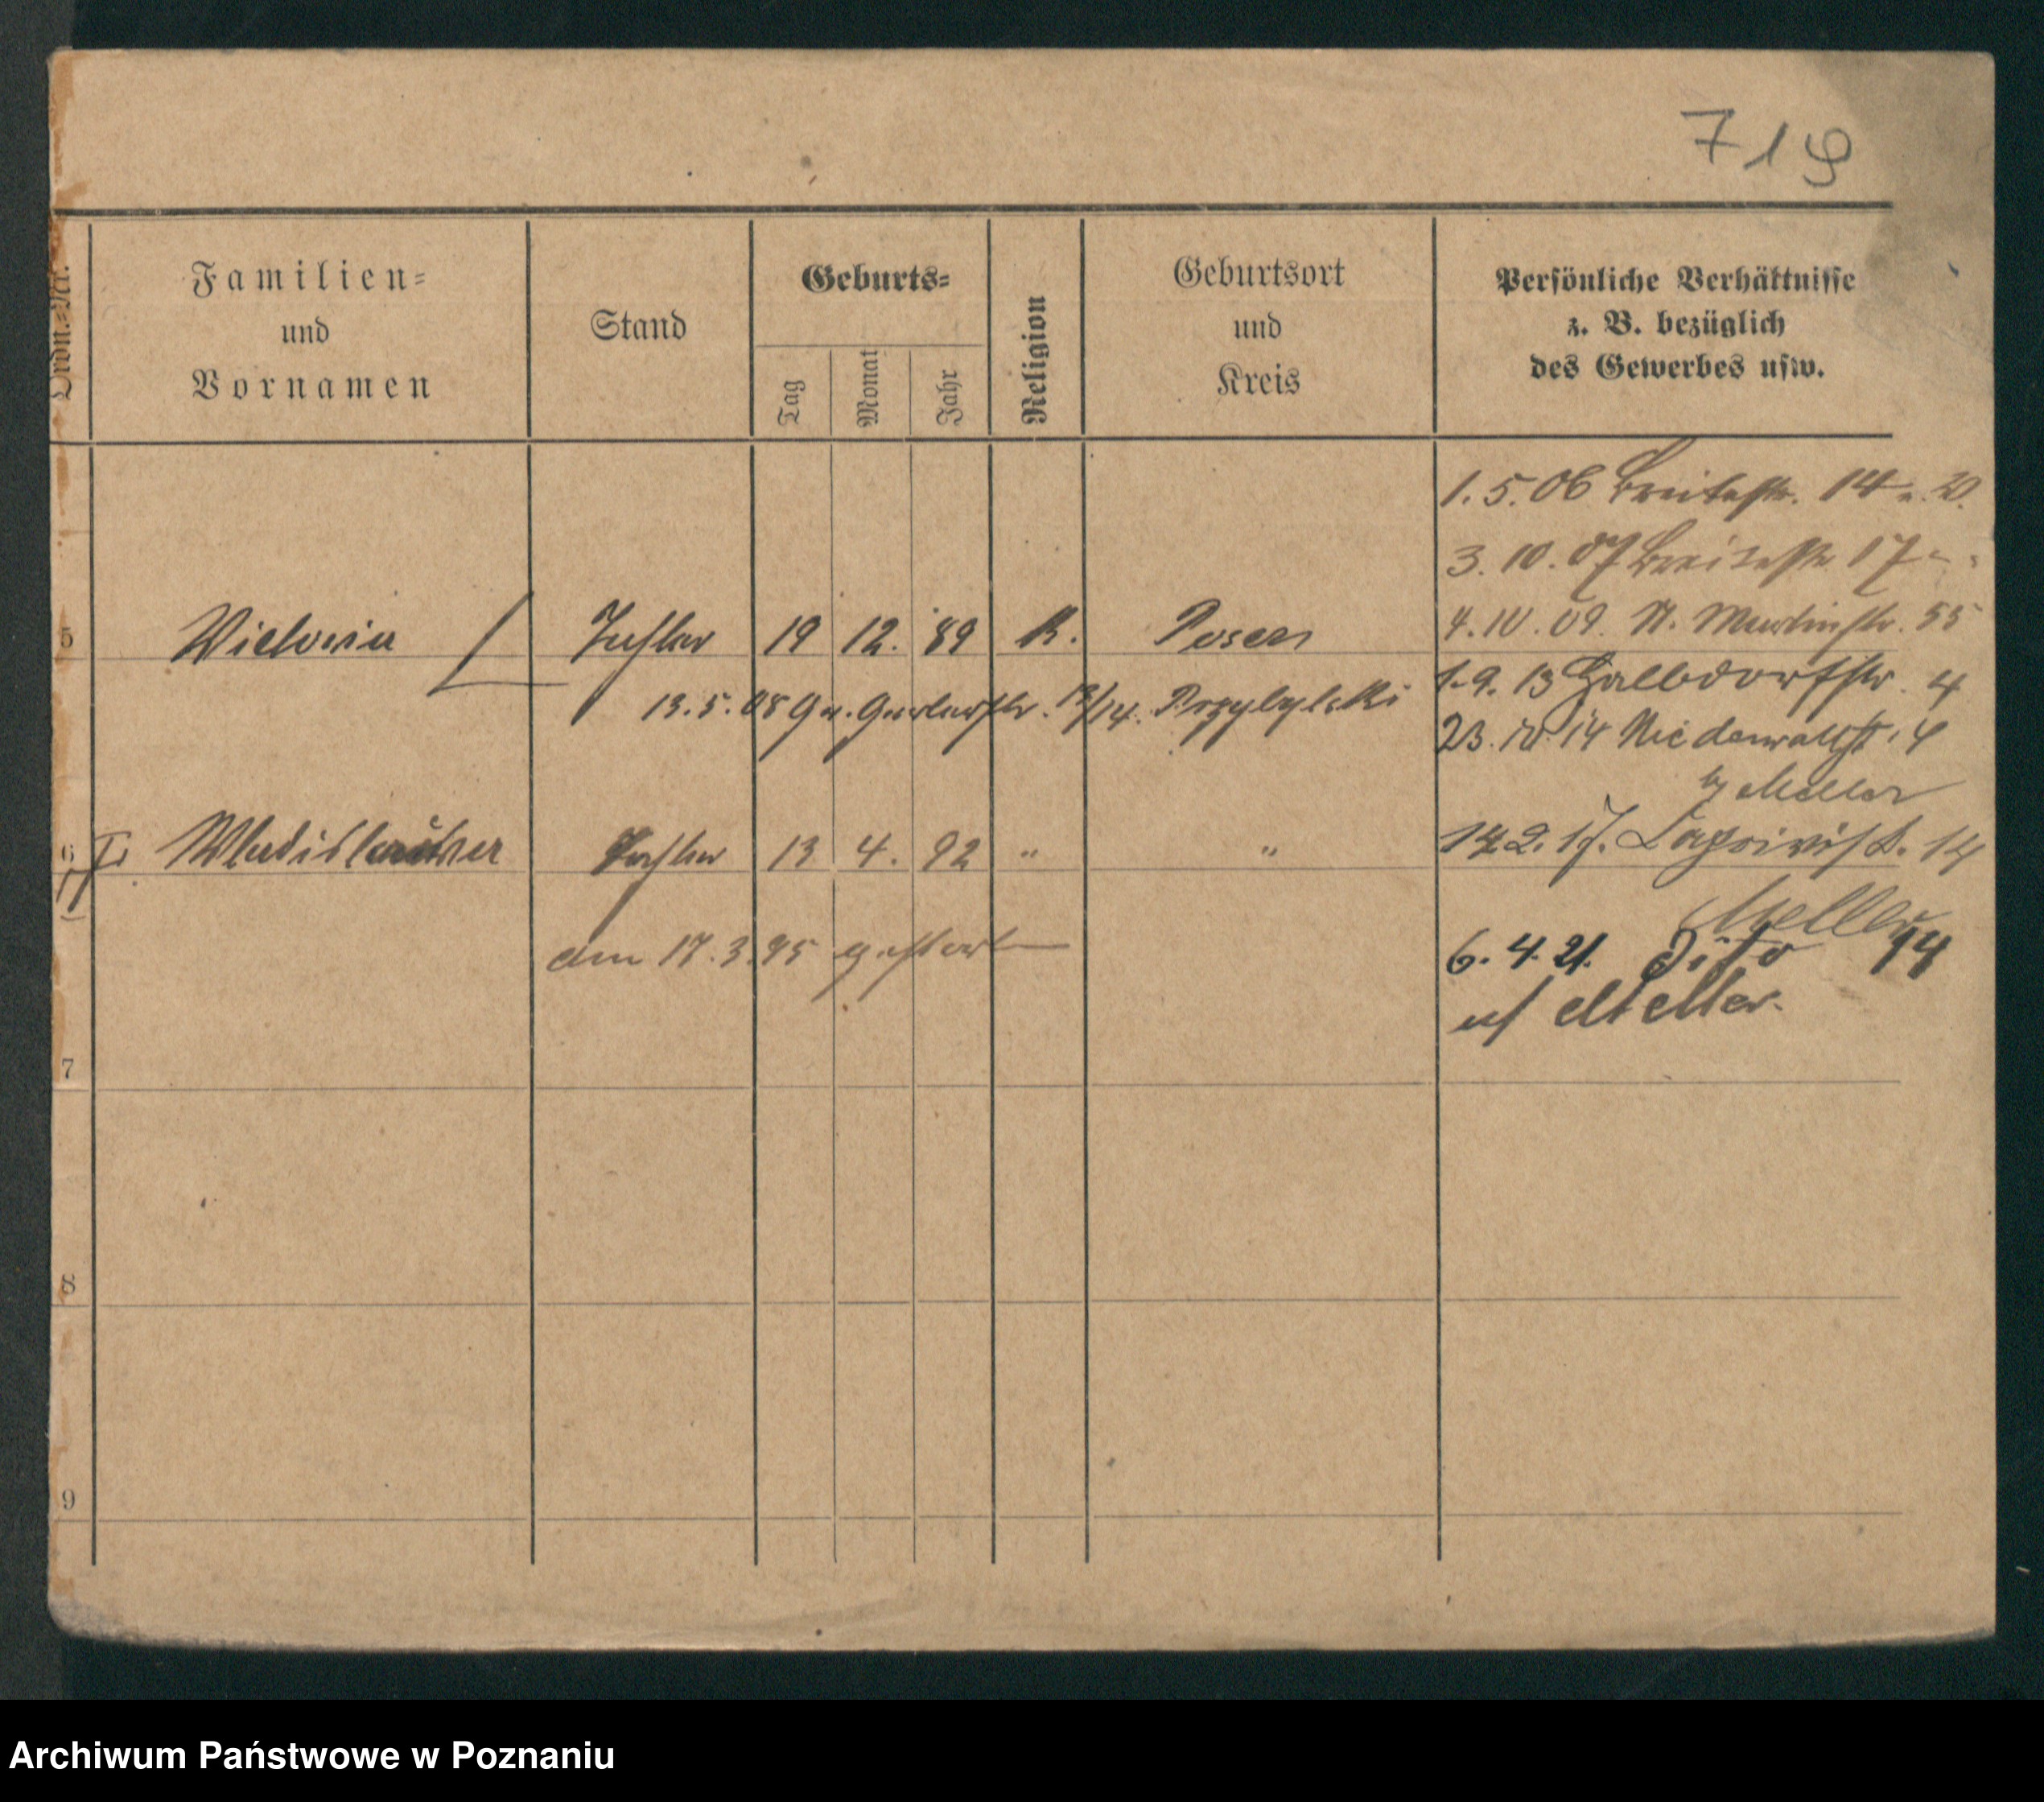 719
Ordn.-Nr.
Familien-
und
Vornamen
Stand
Geburts-
Tag
Monat
Jahr
Religion
Geburtsort
und
Kreis
Persönliche Verhältnisse
z. B. bezüglich
des Gewerbes usw.
1. 5. 06 Breitestr. 14
3. 10. 07 Breitestr. 17
4. 10. 09. St. Martinstr. 55
5 Victoria Tochter 19 12. 89 K. Posen
13. 5. 08 Gr. Gerberstr. 13/14. Przybylski
1. 9. 13 Halbdorfstr. 4
23. 10. 14 Niederwallst. 4
Meller
6 Tochter 13 4. 92 " "
2. 17. 14
Meller
am 17. 3. 95 gestorb
6. 4. 21. Dito 14
Meller.
7
8
9
Archiwum Państwowe w Poznaniu